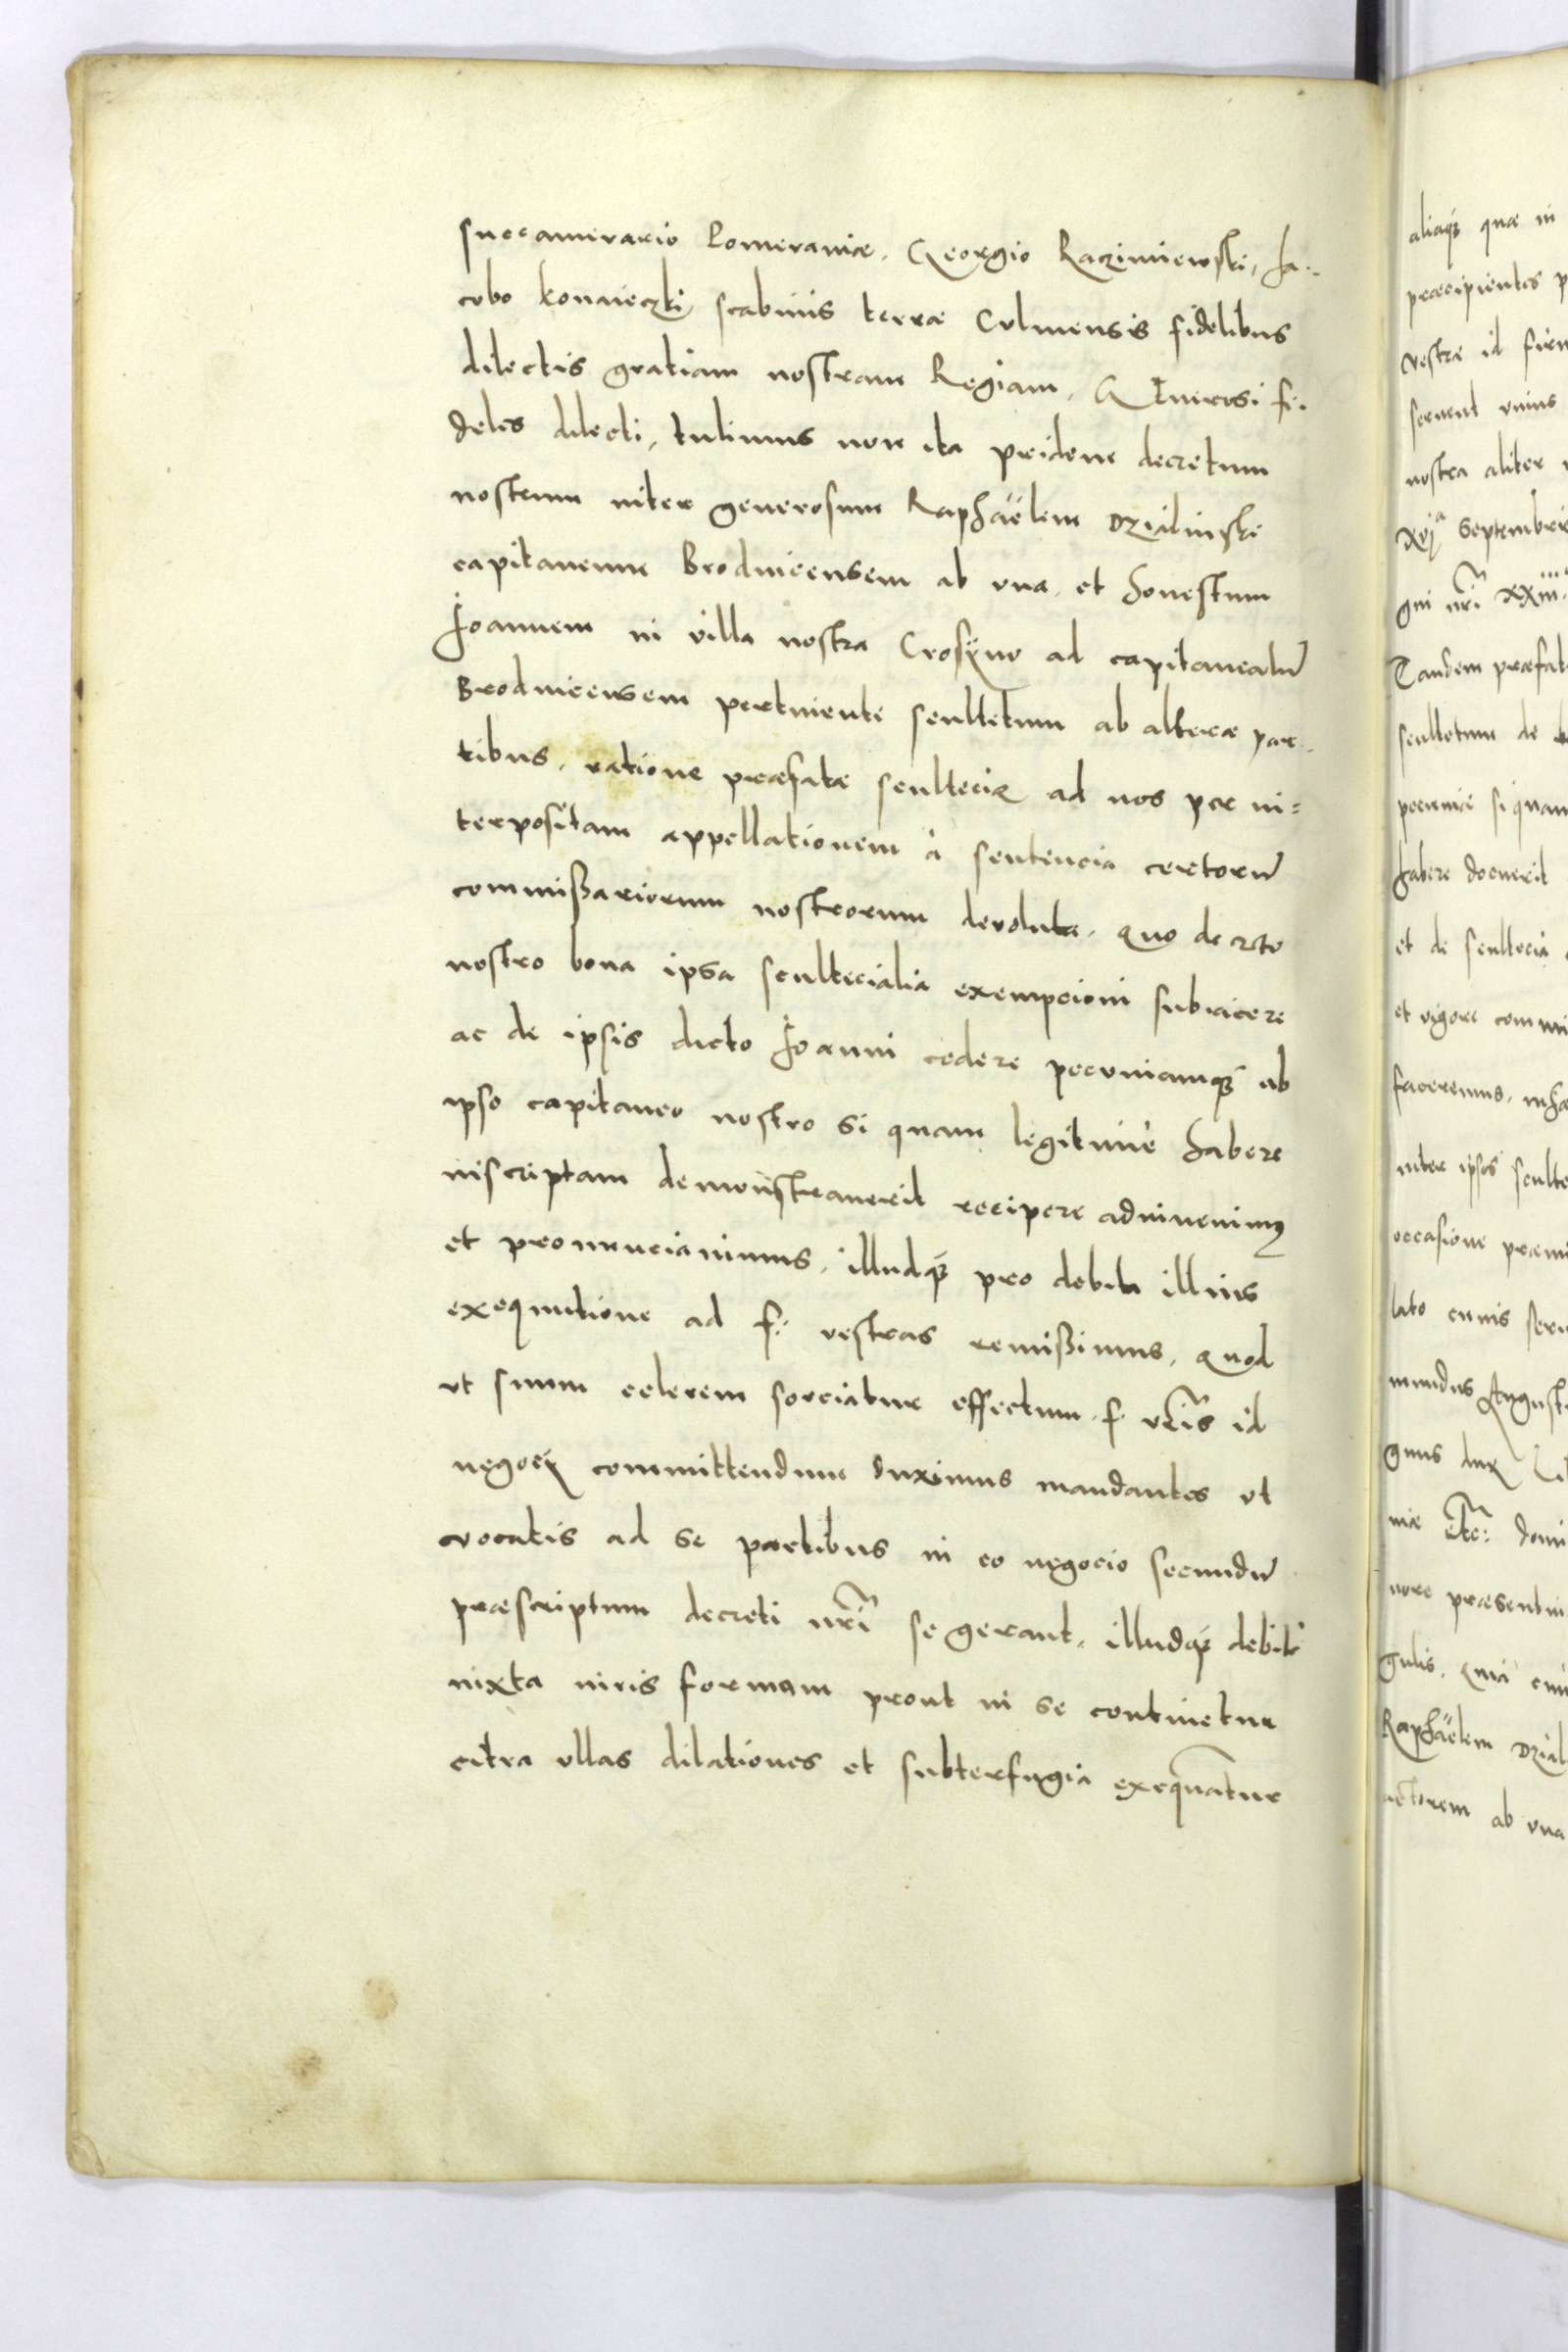 succamerario Pomeraniæ. Georgio Raczimiewski, Ja-
cobo Konaieczki scabinis terræ Culmensis fidelibus
dilectis gratiam nostram Regiam. Generosi fi-
deles dilecti, tulimus non ita pridem decretum
nostrum inter generosum Raphaëlem Dzialinski
capitaneum Brodnicensem ab una, et honestum
Joannem in villa nostra Crosÿno ad capitaneatũ
Brodnicensem pertinente scultetum ab altera par-
tibus, ratione præfatæ sculteciæ ad nos per in=
terpositam appellationem à sentencia certorũ
commißariorum nostrorum devoluta. quo decreto
nostro bona ipsa scultecialia exempcioni subiicere
ac de ipsis dicto Joanni cedere pecuniamq₃ ab
ipso capitaneo nostro si quam legitimè habere
inscriptam demonstraverit recipere adinvenimus
et pronunciavimus, illudq₃ pro debita illius
exequutione ad f: vestras remißimus, quod
ut suum celerem sorciatur effectum f. vr̃is id
negocÿ committendum duximus mandantes ut
vocatis ad se partibus in eo negocio secundũ
præscriptum decreti nr̃i se gerant, illudq₃ debitè
iuxta iuris formam prout in se continetur
citra ullas dilationes et subterfugia exequãtur
aliaq₃ quæ in
præcipientes
vestræ id
servent unius
nostra aliter
xvjᵃ Septembris
gni nr̃i xxiii
Tandem præfat
scultetum de
pecuniæ si quam
habere docuerit
et de scultecia
et vigore commi
faceremus.
inter ipsos sculte
occasione præmi
lato cuius
mundus August
gnus dux Li
niæ etc: domi
nore præsentiu
gulis. quia
Raphaëlem Dzial
actorem ab una